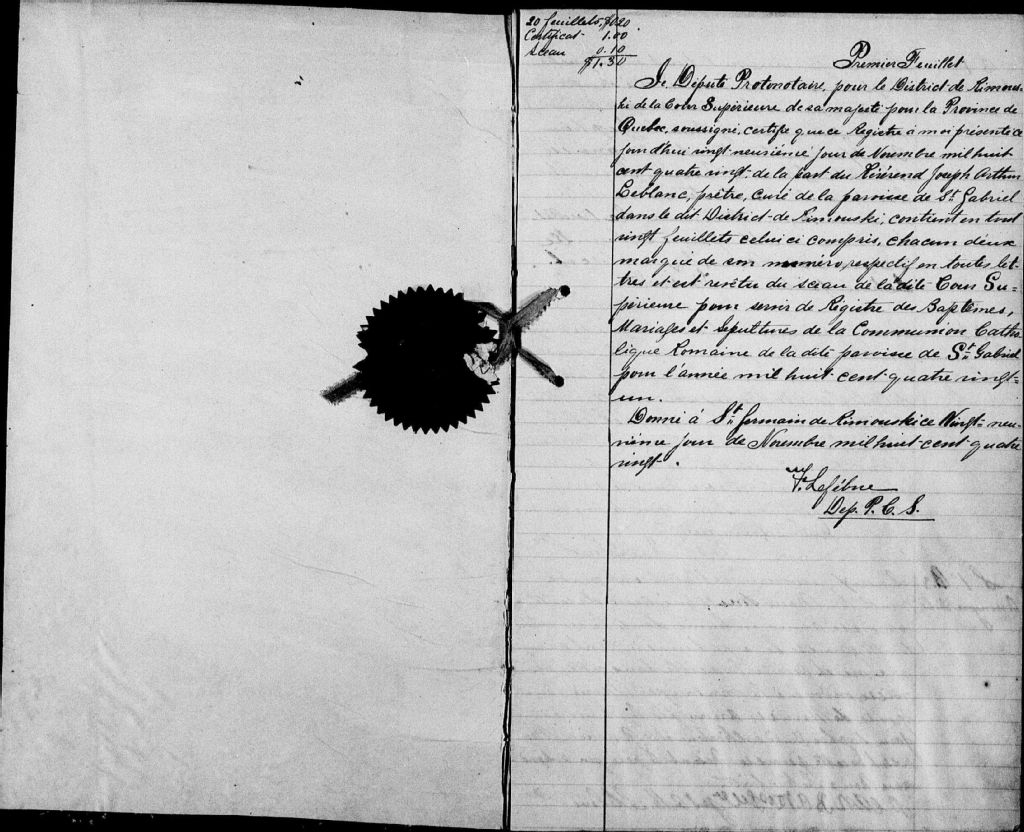 20 feuillets, $0.20
Certificat 1.00
Sceau 0.10
$1.30
Premier Feuillet
Je Député Protonotaire, pour le District de Rimous-
ki de la Cour Supérieure de sa majesté pour la Province de
Québec, soussigné, certifie que ce Registre à moi présenté ce
jourd'hui vingt-neuvième jour de Novembre mil huit
cent quatre vingt de la part du Révérend Joseph Arthur
Leblanc, prêtre, curé de la paroisse de St. Gabriel
dans le dit District de Rimouski, contient en tout
vingt feuillets celui ci compris, chacun deux
marqué de son numéro respectif en toutes let-
tres et est revêtu du sceau de la dite Cour Su-
périeure pour servir de Régistre des Baptêmes,
Mariages et Sépultures de la Communion Catho
lique Romaine de la dite paroisse de St. Gabriel
pour l'année mil huit cent quatre vingt-
un.
Donné à St. Germain de Rimouski ce Vingt-neu-
vième jour de Novembre mil huit cent quatre
vingt.
Lefêbvre
Dep. P. C. S.